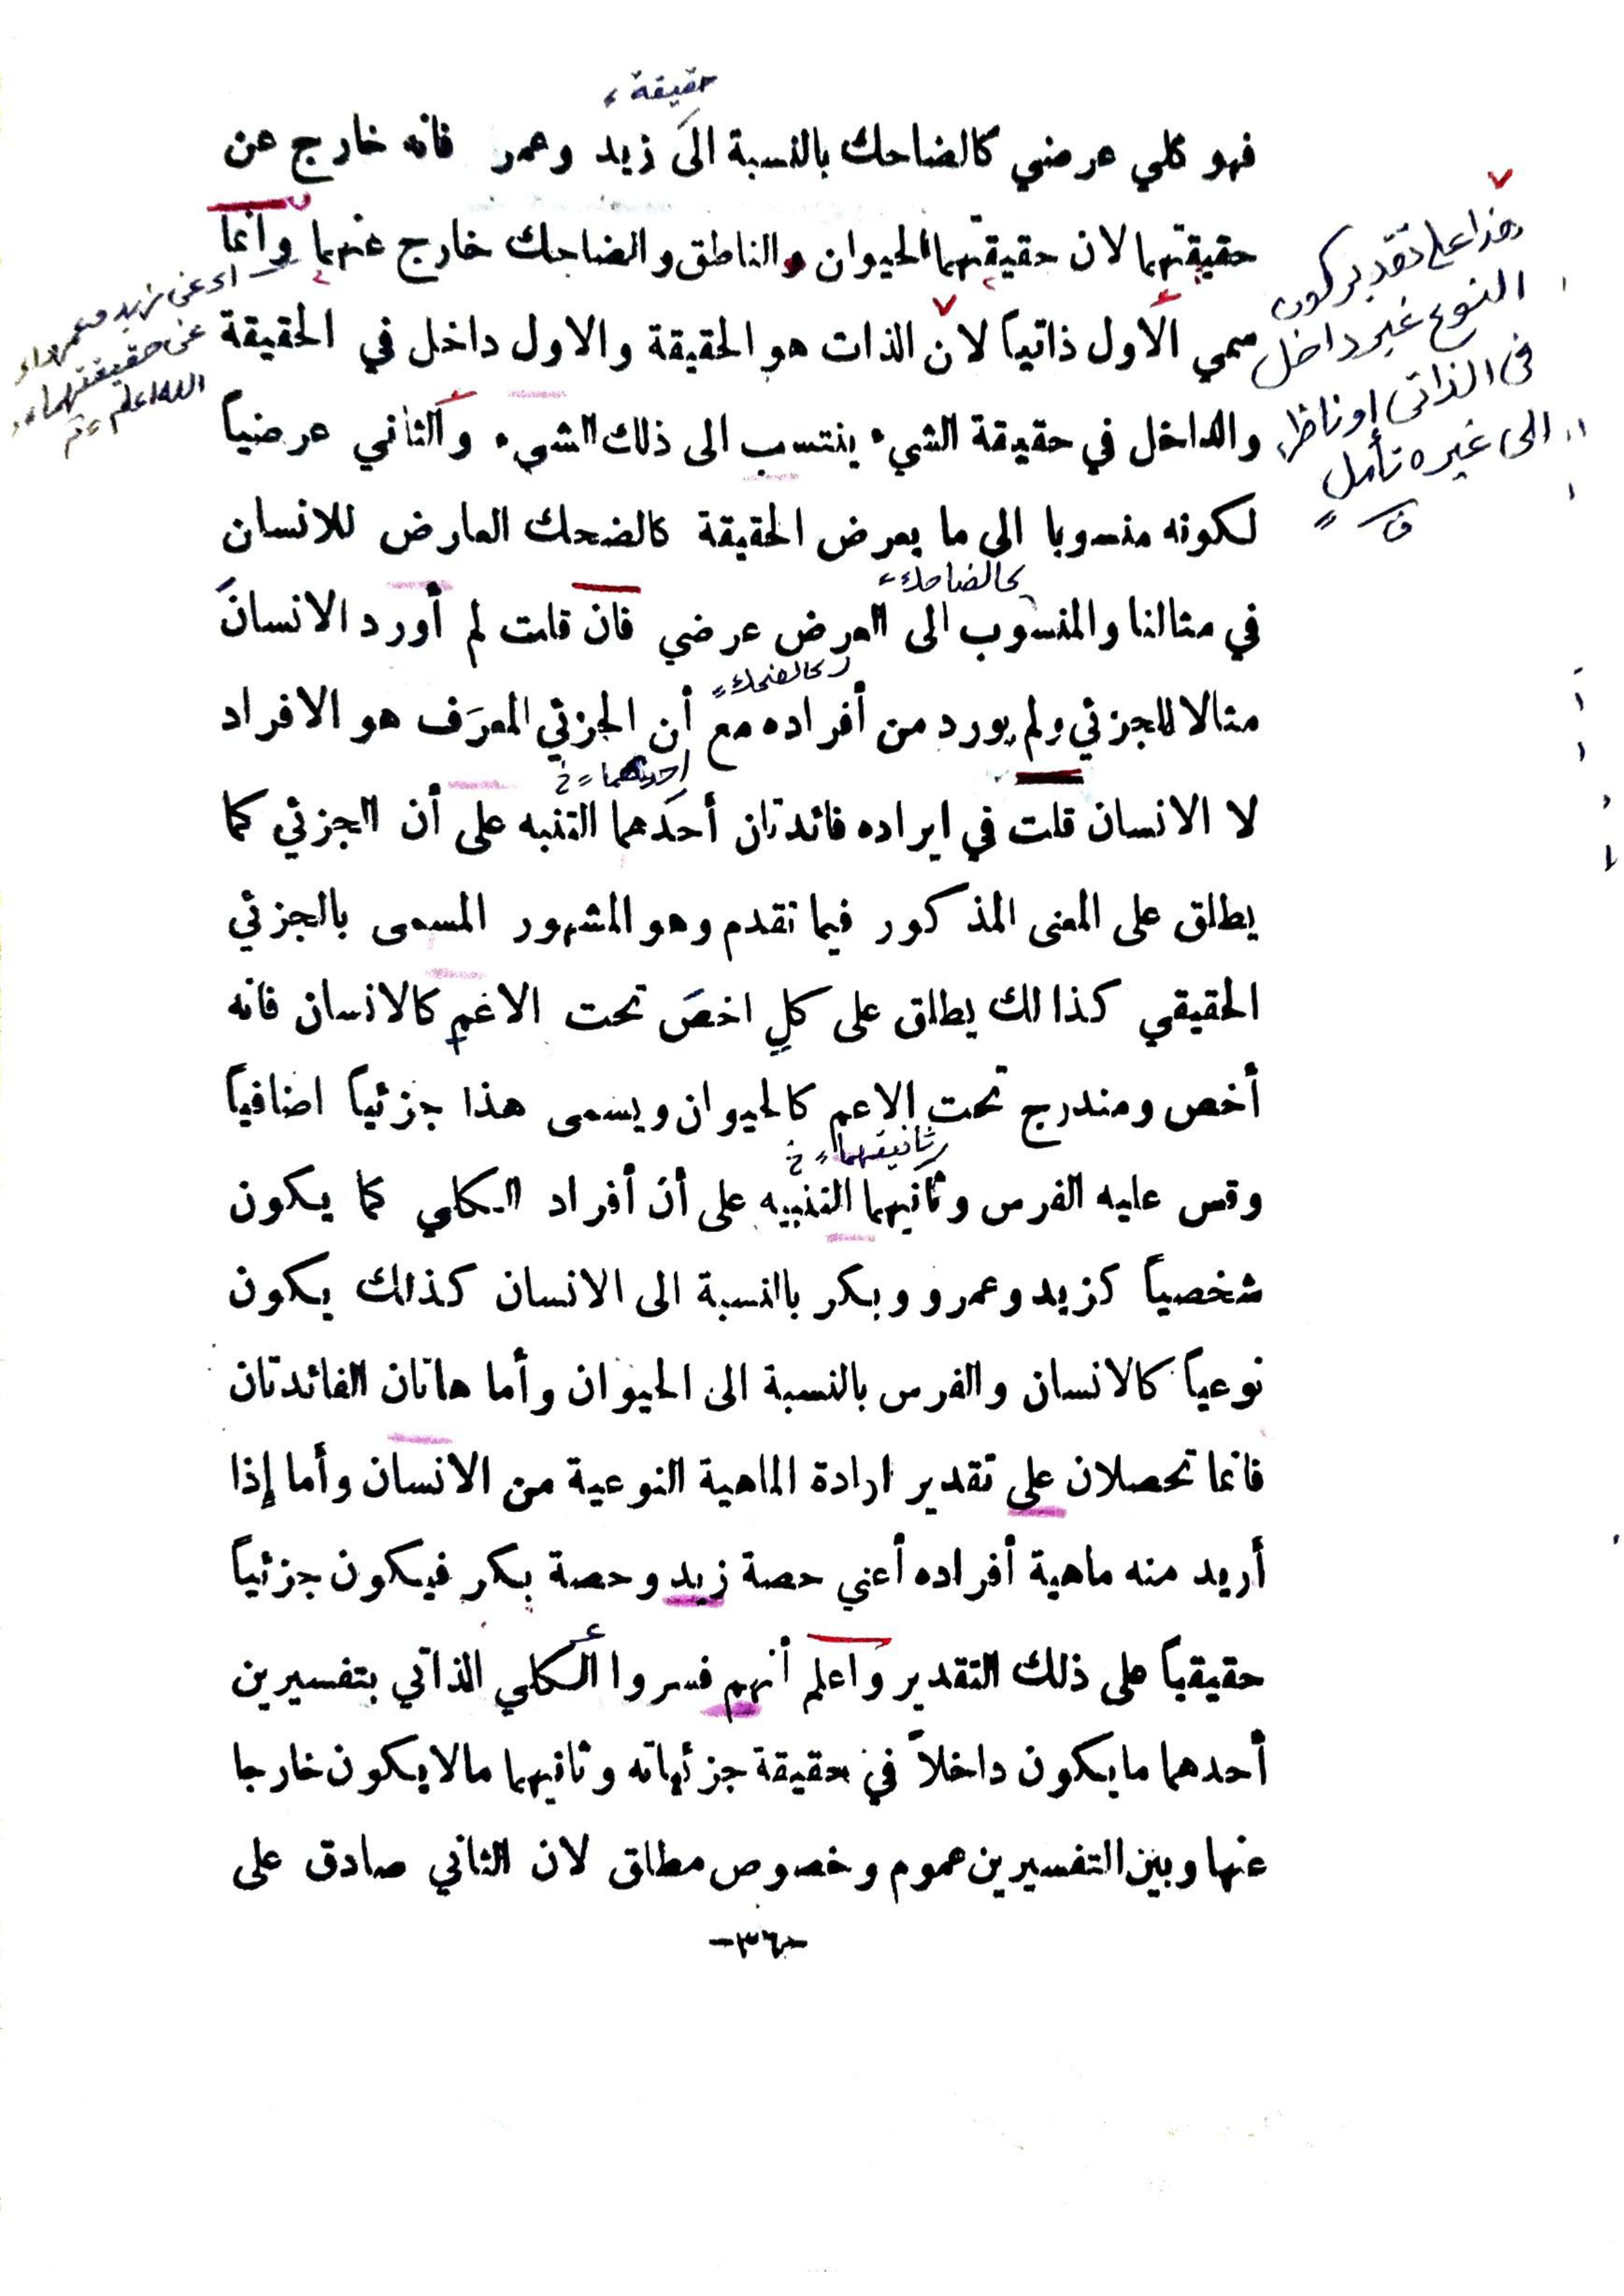 حقيقة
فهو كلي عرضي كالضاحك بالنسبة الى زيد وعمر فانه خارج عن
حقيقتهما لان حقيقتهما الحيوان والناطق والضاحك خارج عنهما وانما
سمي الأول ذاتياً لان الذات هو الحقيقة والاول داخل في الحقيقة
والداخل في حقيقة الشيء ينتسب الى ذلك الشيء والثاني عرضياً
لكونه منسوبا الى ما يعرض الحقيقة كالضحك العارض للانسان
كالضاحك
في مثالنا والمنسوب الى العرض عرضي فان قلت لم أورد الانسان
كالضحك
مثالا للجزئي ولم يورد من أفراده مع أن الجزئي المعرَف هو الافراد
احديهما خ
لا الانسان قلت في ايراده فائدتان أحدهما التنبه على أن الجزئي كما
يطلق على المعنى المذكور فيما تقدم وهو المشهور المسمى بالجزئي
الحقيقي كذالك يطلق على كلِ اخصَ تحت الاعم كالانسان فانه
أخص ومندرج تحت الاعم كالحيوان ويسمى هذا جزئياً اضافياً
ثانيتهما خ
وقس عليه الفرس وثانيهما التنبيه على أن أفراد الكلي كما يكون
شخصياً كزيد وعمرو وبكر بالنسبة الى الانسان كذلك يكون
نوعياً كالانسان والفرس بالنسبة الى الحيوان وأما هاتان الفائدتان
فانما تحصلان على تقدير ارادة الماهية النوعية من الانسان وأما إذا
أريد منه ماهية أفراده أعني حصة زيد وحصة بكر فيكون جزئياً
حقيقياً على ذلك التقدير واعلم أنهم فسروا الكلي الذاتي بتفسيرين
أحدهما ما يكون داخلاً في حقيقة جزئياته وثانيهما مالا يكون خارجا
عنها وبين التفسيرين عموم وخصوص مطلق لان الثاني صادق على
-٣٦-
هذا على تقدير كون
النوع غير داخل
فى الذاتى او ناظر
الى غيره تأمل
اى عن زيد وعمرو او
عن حقيقتهما
الله اعلم